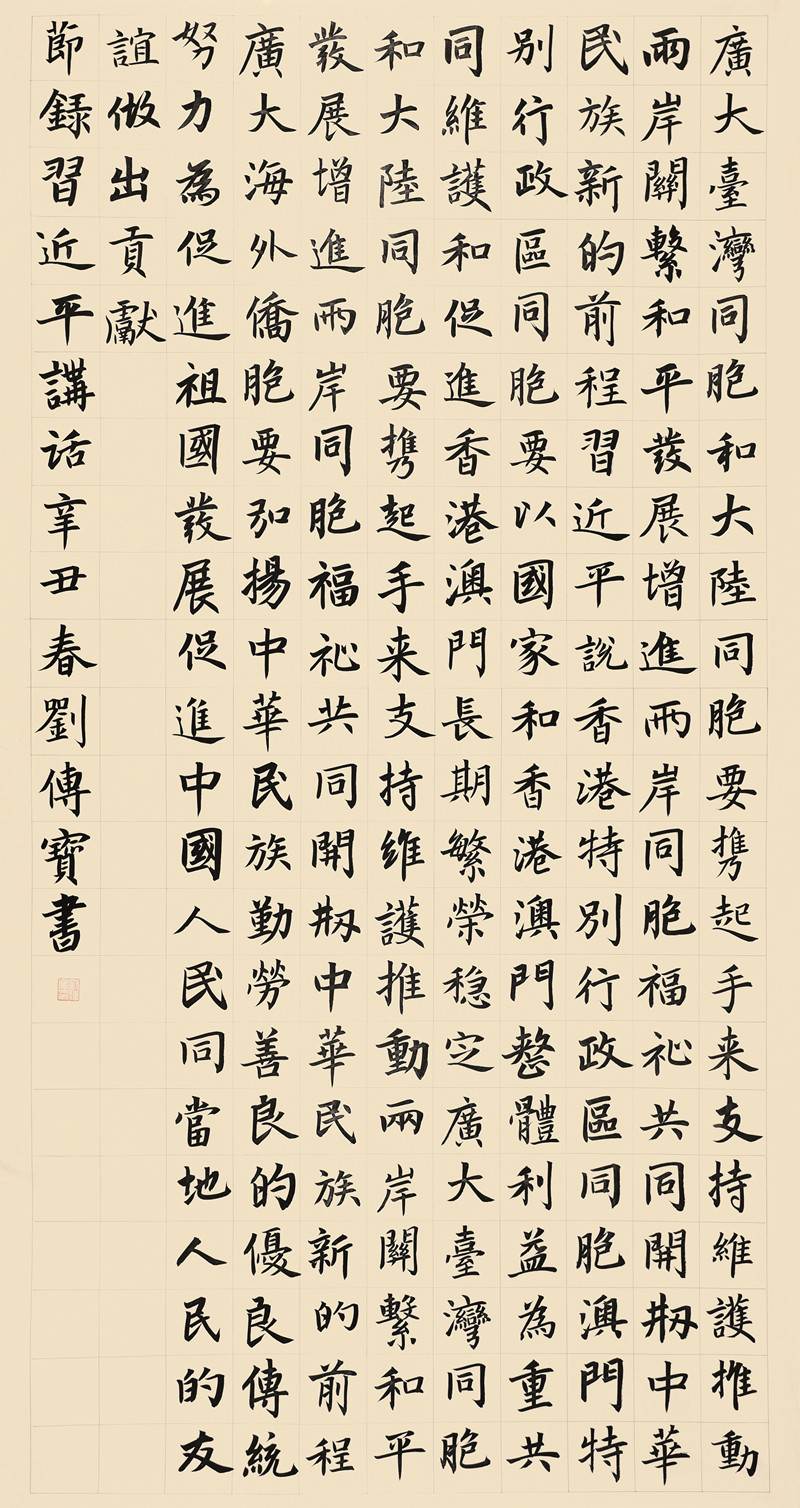 廣大臺灣同胞和大陸同胞要携起手来支持維護推動
兩岸關繫和平發展增進兩岸同胞福祉共同開刱中華
民族新的前程習近平說香港特別行政區同胞澳門特
别行政區同胞要以國家和香港澳門整體利益為重共
同維護和促進香港澳門長期繁榮穏定廣大臺灣同胞
和大陸同胞要携起手来支持維護推動兩岸關繫和平
發展增進兩岸同胞福祉共同開刱中華民族新的前程
廣大海外僑胞要弘揚中華民族勤勞善良的優良傳統
努力為促進祖國發展促進中國人民同當地人民的友
誼做出貢獻
節録習近平講話辛丑春劉傳寶書